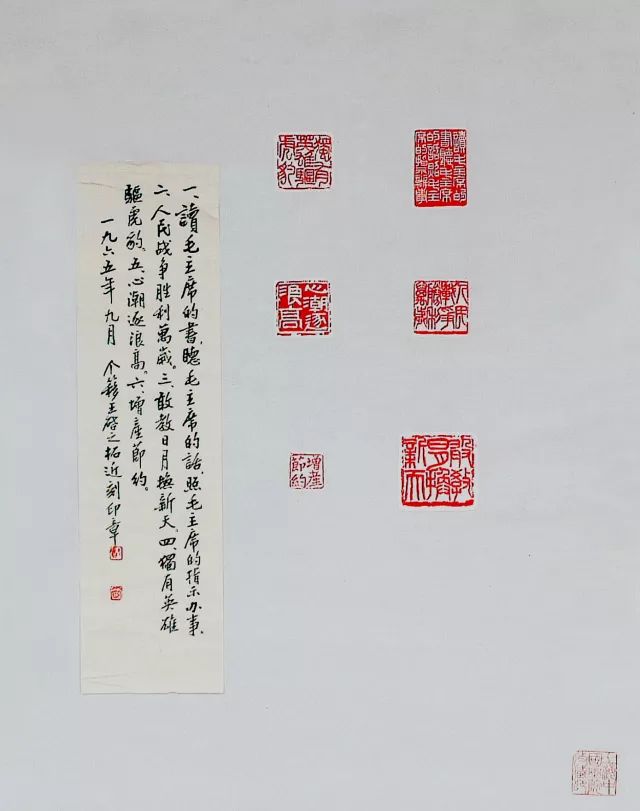 讀毛主席的
書聽毛主席
的話照毛主
席的指示辦事
人民
戰爭
勝利
萬歲
敢教
日月換
新天
獨有
英雄驅
虎豹
心潮逐
浪高
增產
節約
一、讀毛主席的書、聽毛主席的話、照毛主席的指示办事、
二、人民战争胜利萬歲。三、敢教日月换新天。四、獨有英雄
驅虎豹。五、心潮逐浪高。六、增產節約。
一九六五年九月 个簃王 之拓近刻印章